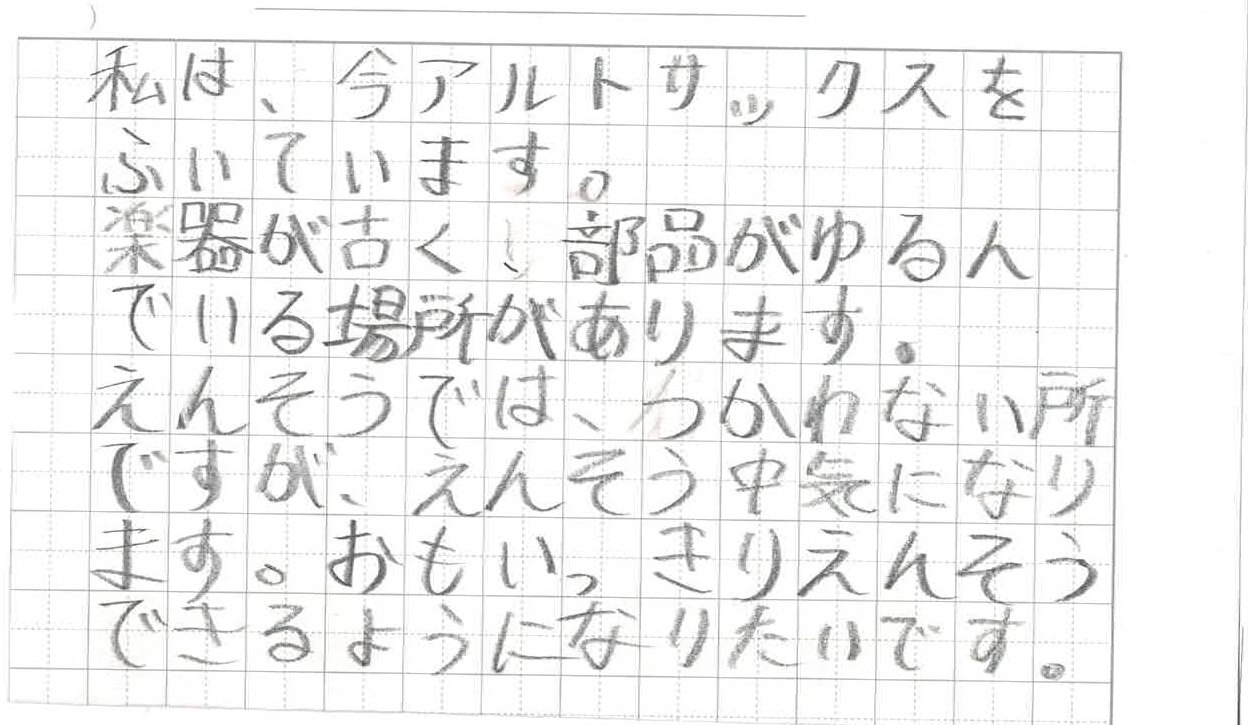 私は、今アルトサックスを
ふいています。
楽器が古く、部品がゆるん
でいる場所があります。
えんそうでは、つかわない所
ですが、えんそう中気になり
ます。おもいっきりえんそう
できるようになりたいです。